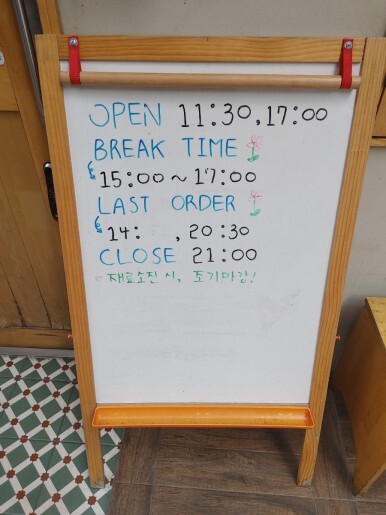 OPEN 11:30, 17:00
BREAK TIME
15:00 ~ 17:00
LAST ORDER
14: , 20:30
CLOSE 21:00
재료소진 시, 조기마감!